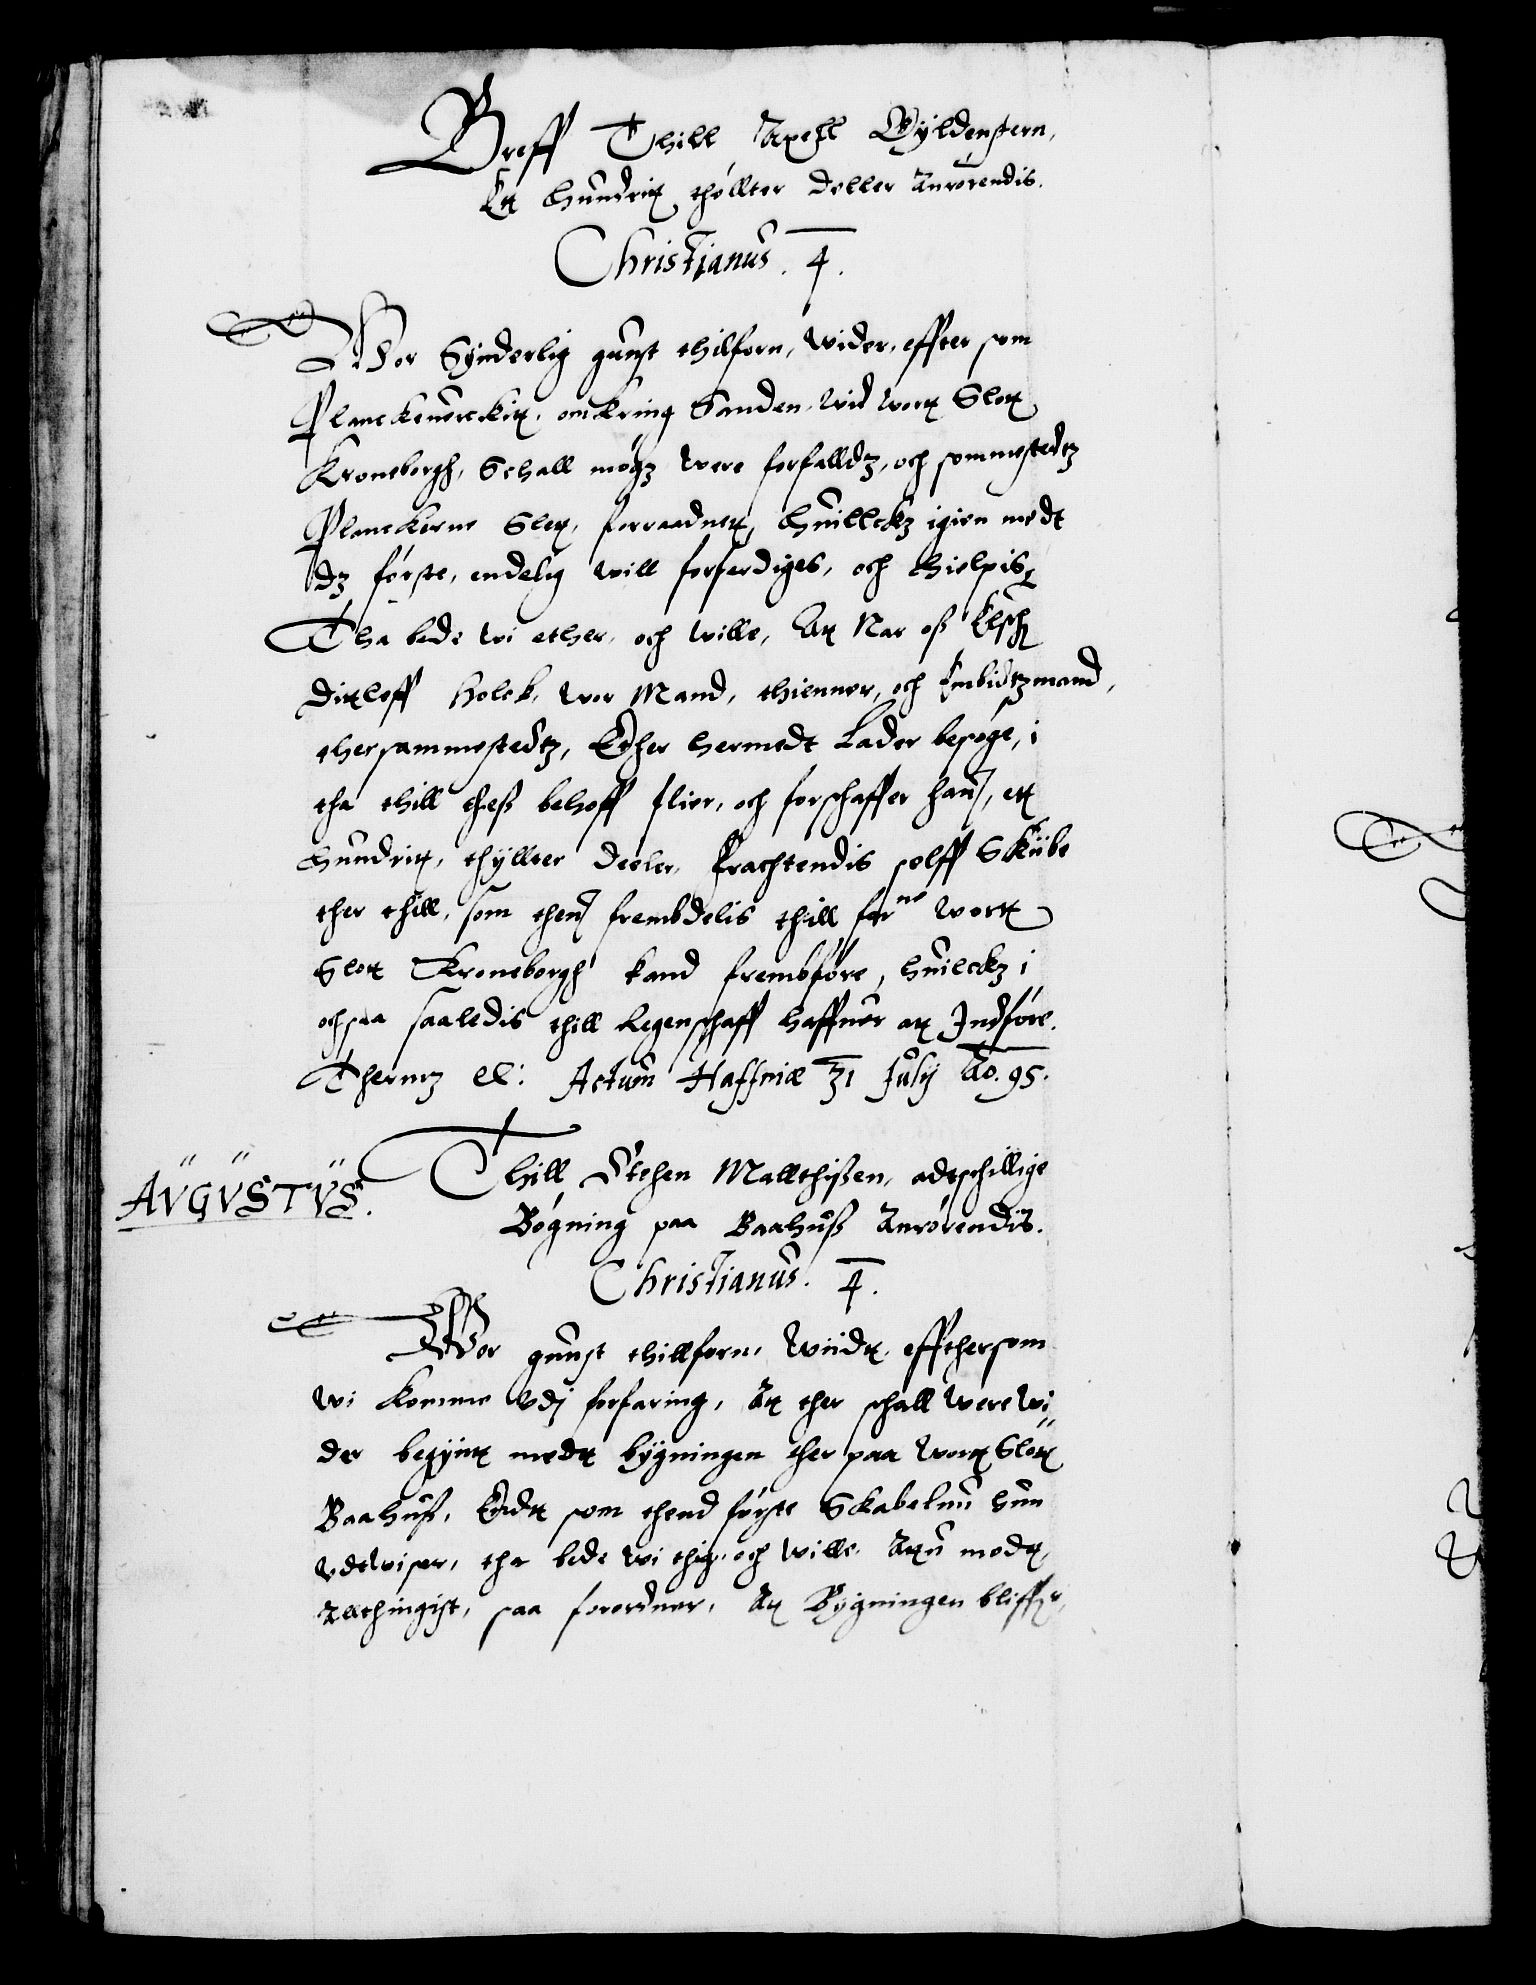 Breff Thill Axell Gÿldenstern,
Et hundrit thøllter deller Anrørendis.
Christianus. 4.
Wor Synderlig gunst thilforn, wider, effter som
Planckeuerckit, omkring Sanden, wid wort Slott
Kroneborgh, Schall møgz were forfalldtz, och sommestedtz
Planckerne Slet, forraadnet, huillckz igien medt
dz første, endelig will forferdiges, och hielpis,
Tha bede wi ether, och wille, At Nar oß Elsch
Ditloff Holck, wor Mand, thienner, och Embidtzmand,
thersammestedtz, Ether hermedt Lader besøge, i
tha thill theß behoff flier, och forschaffer hanß, et
hundrit, thÿllter deeler, fragtendis selff Skiibe
ther thill, som thenß frembdelis thill forne wort
Slot Kroneborgh kand frembføre, huilckz i
ochsaa saaledis thill Regenschaff haffuer at Indføre.
Thermz etc: Actum Haffniæ 31 Julij Ao. 95.
AVGVSTVS.
Thill Stehen Mallthißen, adtschillige
Bøgning paa Baahuß Anrørendis.
Christianus. 4.
Wor gunst thillforn, Wiidt, effthersom
wi komme vdj forfaring, At ther schall were wi
der begÿnt medt bÿgningen ther paa wort Slott
Baahuß, Endt som thend første Skabelun hun
vdtwiser, tha bede wi thig, och wille, Attu medt
Allthingist, saa forordner, At Bÿgningen bliffer,